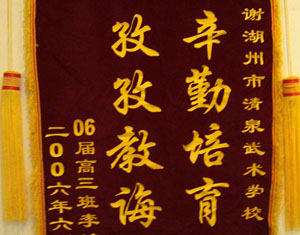 谢湖州市清泉武术学校
辛勤培育
孜孜教诲
06届高三班李
二００六年六